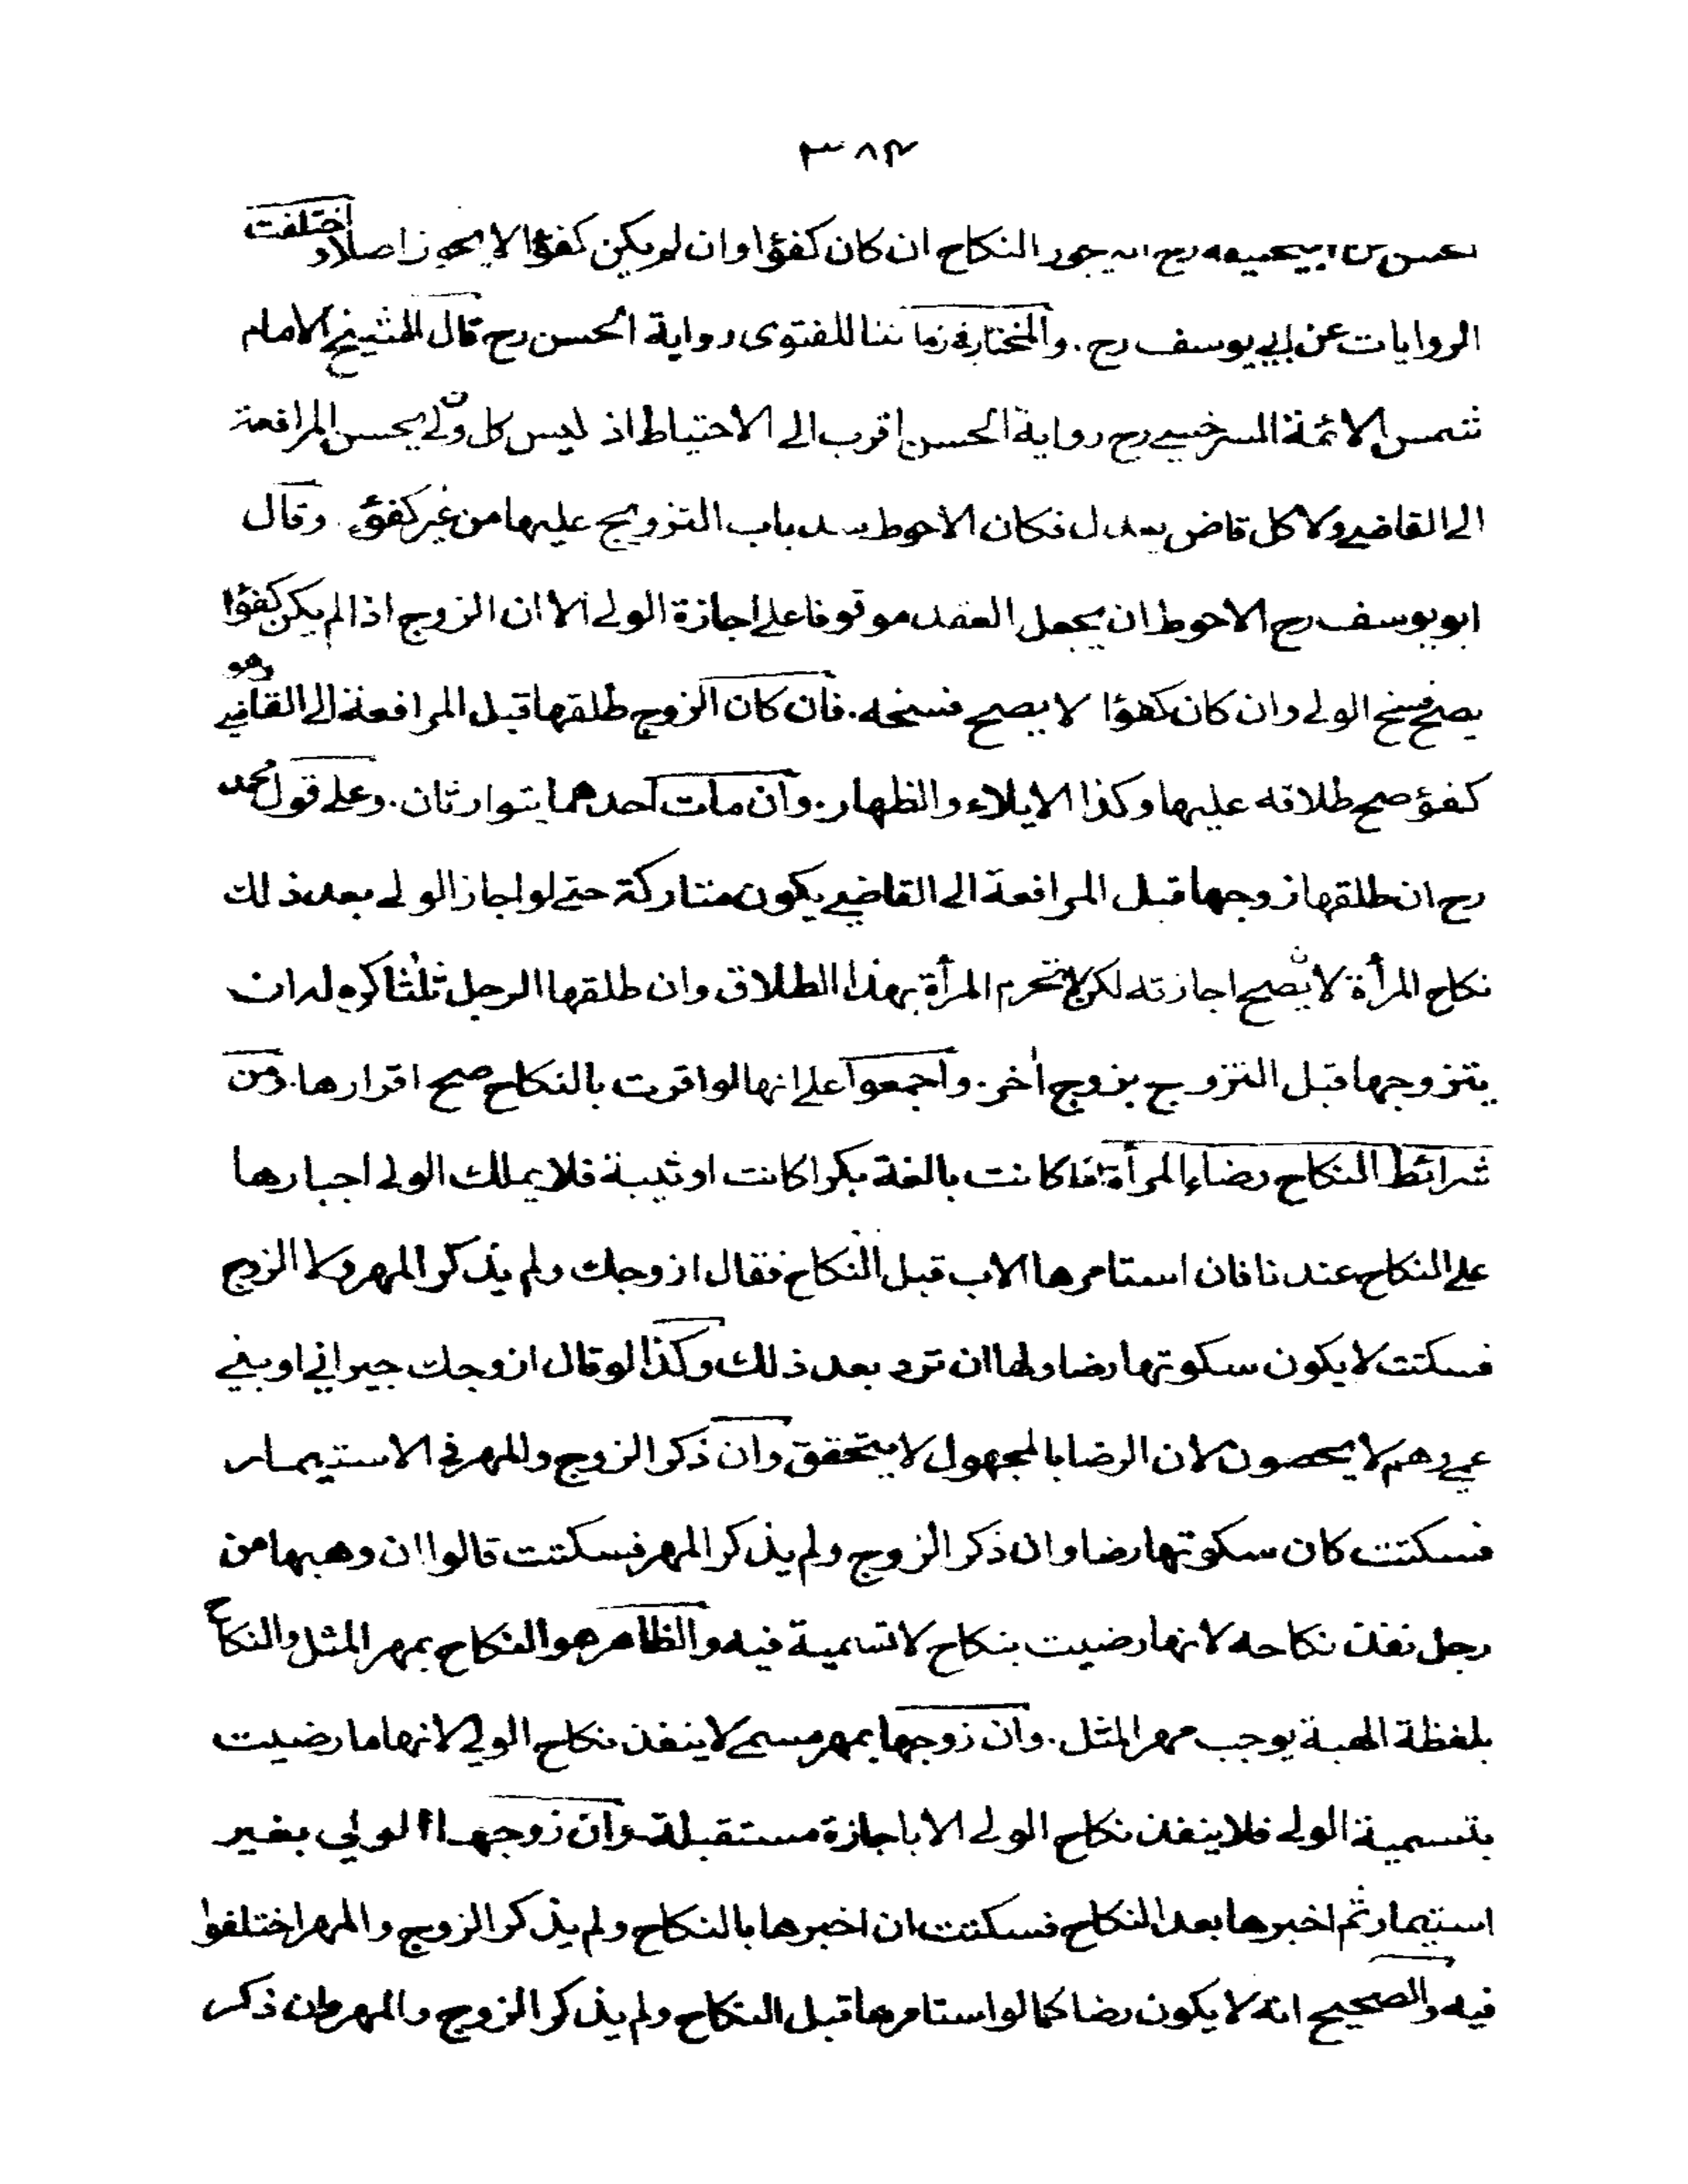 ٣٨٤
الحسن عن ابيحنيفه رح انه يجوز النكاح ان كان كفؤا وان لم يكن كفؤا لا يجوز اصلا و اختلفت
الروايات عن ابي يوسف رح. والمختار في زماننا للفتوى رواية الحسن رح قال الشيخ الامام
شمس الائمة السرخسي رح رواية الحسن اقرب الى الاحتياط اذ ليس كل ولي يحسن المرافعة
الى القاضي ولا كل قاض يعدل فكان الاحوط سد باب التزويج عليها من غير كفؤ. وقال
ابو يوسف رح الاحوط ان يجعل العقد موقوفا على اجازة الولي الا ان الزوج اذا لم يكن كفؤا
يصح فسخ الولي وان كان كفؤا لا يصح فسخه. فان كان الزوج طلقها قبل المرافعة الى القاضي وهو
كفؤ صح طلاقه عليها وكذا الايلاء والظهار. وان مات احدهما يتوارثان. وعلى قول محمد
رح ان طلقها زوجها قبل المرافعة الى القاضي يكون متاركة حتى لو اجاز الولي بعد ذلك
نكاح المرأة لا تصح اجازته لكن لا تحرم المرأة بهذا الطلاق وان طلقها الرجل ثلثا كره له ان
يتزوجها قبل التزوج بزوج اخر. واجمعوا على انها لو اقرت بالنكاح صح اقرارها. ومن
شرائط النكاح رضاء المرأة اذا كانت بالغة بكرا كانت او ثيبة فلا يملك الولي اجبارها
على النكاح عندنا فان استامرها الاب قبل النكاح فقال ازوجك ولم يذكر المهر ولا الزوج
فسكتت لا يكون سكوتها رضا ولها ان ترد بعد ذلك وكذا لو قال ازوجك جيراني او بني
عمي وهم لا يحصون لان الرضا بالمجهول لا يتحقق وان ذكر الزوج والمهر في الاستيمار
فسكتت كان سكوتها رضا وان ذكر الزوج ولم يذكر المهر فسكتت قالوا ان وهبها من
رجل نفذ نكاحه لانها رضيت بنكاح لا تسمية فيه والظاهر هو النكاح بمهر المثل والنكاح
بلفظة الهبة يوجب مهر المثل. وان زوجها بمهر مسمى لا ينفذ نكاح الولي لانها ما رضيت
بتسمية الولي فلا ينفذ نكاح الولي الا باجازة مستقبلة وان زوجها الولي بغير
استيمار ثم اخبرها بعد النكاح فسكتت ان اخبرها بالنكاح ولم يذكر الزوج والمهر اختلفوا
فيه والصحيح انه لا يكون رضا كما لو استامرها قبل النكاح ولم يذكر الزوج والمهر وان ذكر